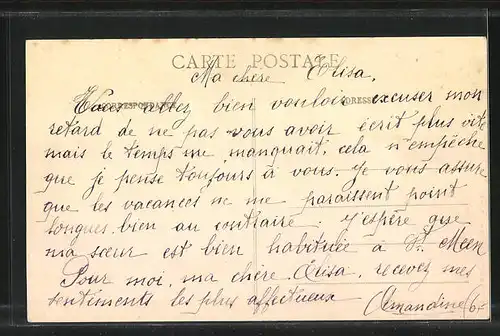 CARTE POSTALE
Ma chère Elisa,
CORRESPONDANCE ADRESSE
Vous allez bien vouloir excuser mon
retard de ne pas vous avoir écrit plus vite
mais le temps me manquait, cela n'empêche
que je pense toujours à vous. Je vous assure
que les vacances ne me paraissent point
longues, bien au contraire. J'espère que
ma sœur est bien habituée à St. Meen
Pour moi, ma chère Elisa, recevez mes
sentiments les plus affectueux Amandine